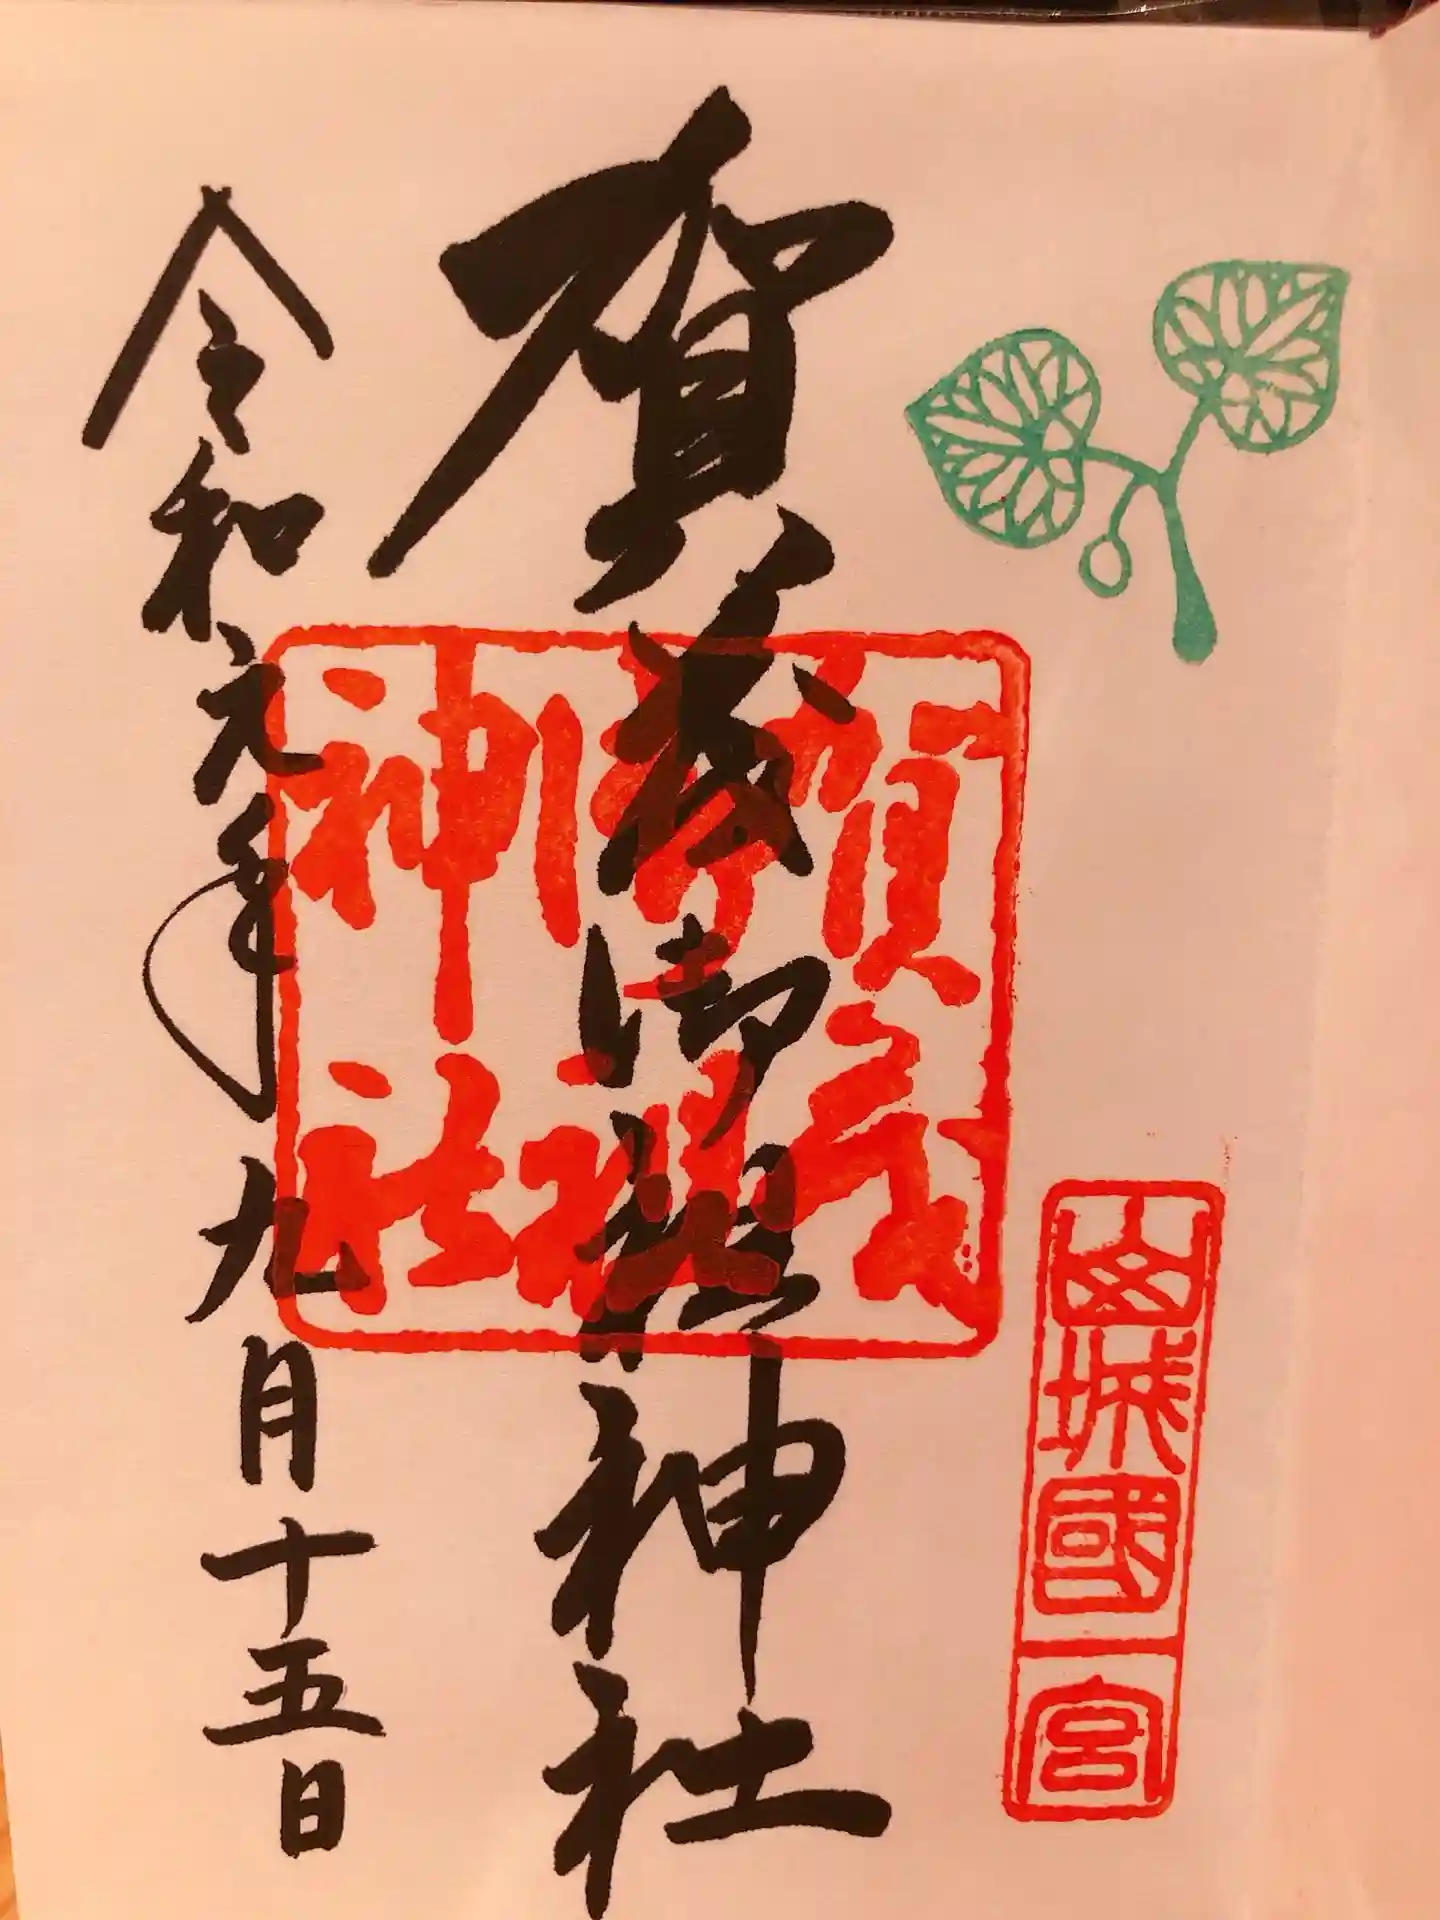 山城國一宮
賀茂御祖神社
賀茂
御祖
神社
令和元年九月十五日